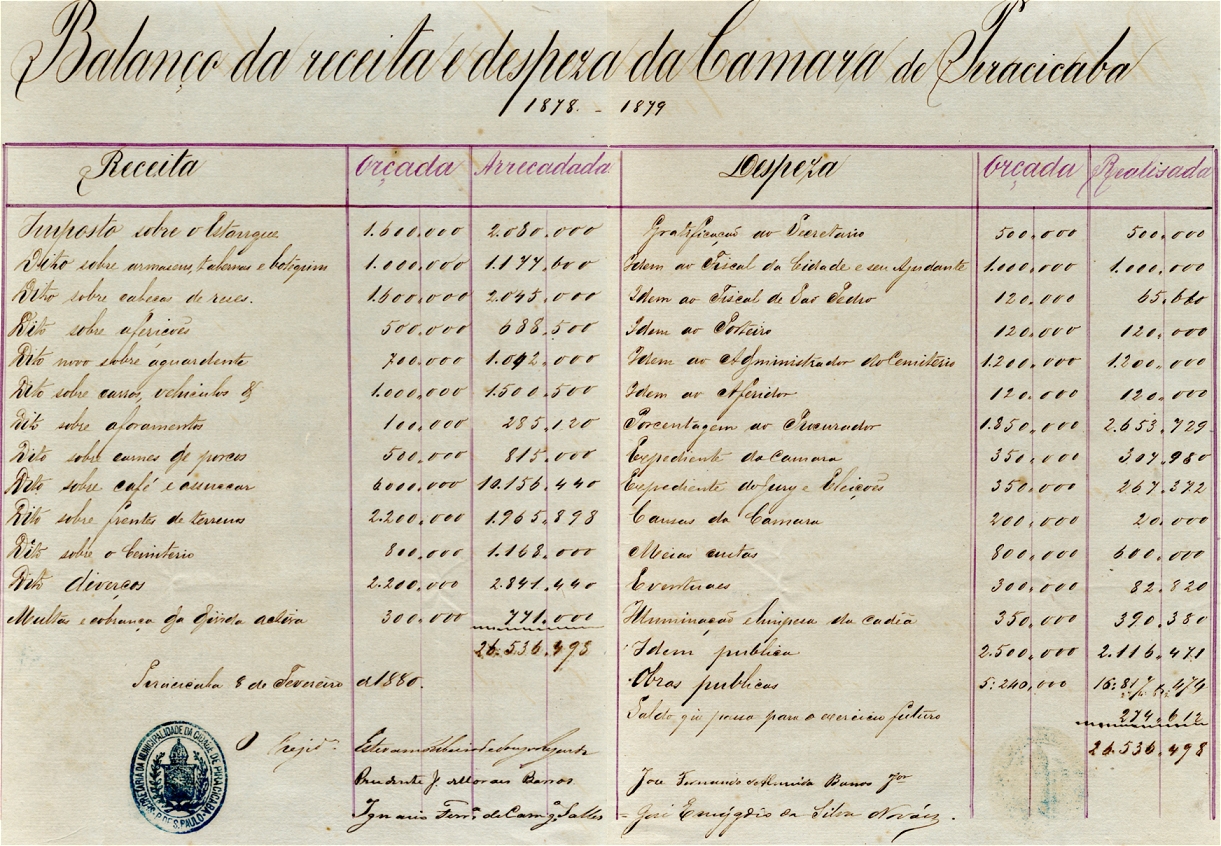 Balanço da receita e despeza da Camara de Piracicaba
1878 - 1879
Receita Orçada Arrecadada Despeza Orçada Realisada
Imposto sobre o Estanque 1.600.000 2.080.000 Gratificação ao Secretario 500.000 500.000
Dito sobre armasens, tabernas e botequim 1.000.000 1.177.600 Idem ao Fiscal da Cidade e seu Ajudante 1.000.000 1.000.000
Dito sobre cabeças de reses. 1.600.000 2.045.000 Idem ao Fiscal de São Pedro 120.000
Dito sobre aferições 500.000 688.500 Idem ao Porteiro 120.000 120.000
Dito novo sobre aguardente 700.000 1.042.000 Idem ao Administrador do Cemiterio 1.200.000 1.200.000
Dito sobre carros, vehiculos & 1.000.000 1.500.500 Idem ao Aferidor 120.000 120.000
Dito sobre aforamentos 100.000 285.120 Porcentagem ao Procurador 1.850.000 2.653.729
Dito sobre carnes de porcos 500.000 815.000 Expediente da Camara 350.000 307.980
Dito sobre café e assucar 6000.000 10.156.440 Expediente do Jury e Eleições 350.000 267.372
Dito sobre frentes de terrenos 2.200.000 1.965.898 Causas da Camara 200.000 20.000
Dito sobre o Cemiterio 800.000 1.168.000 Meias custas 800.000 600.000
Dito diverços 2.200.000 2.841.440 Eventuaes 300.000 82.820
Multas e cobrança da divida activa 300.000 771.000 Illuminação e limpesa da cadêa 350.000 390.380
26.536.498 Idem publica 2.500.000 2.116.471
Piracicaba 8 de Fevereiro d 1880. Obras publicas 5:240,000
Saldo, q' passa para o exercicio futuro 274.612
26.536.498
O Prejid.
Prudente J. de Moraes Barros José Fernando de Almeida Barros Jor
Ignacio Ferr. de Camg. Salles José Emygdio da Silva Nováes.
SECRETARIA DA MUNICIPALIDADE DA CIDADE DE PIRACICABA
P. DE S. PAULO